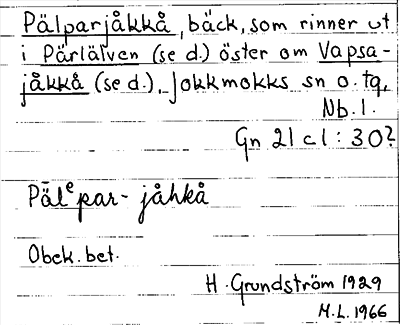 Pälparjåkkå, bäck, som rinner ut
i Pärlälven (se d.) öster om Vapsa-
jåkkå (se d.), Jokkmokks sn o. tg,
Nb. l.
Gn 21 c 1 : 30?
Pälᵉpar- jåhkå
Obek. bet.
H. Grundström 1929
M.L. 1966